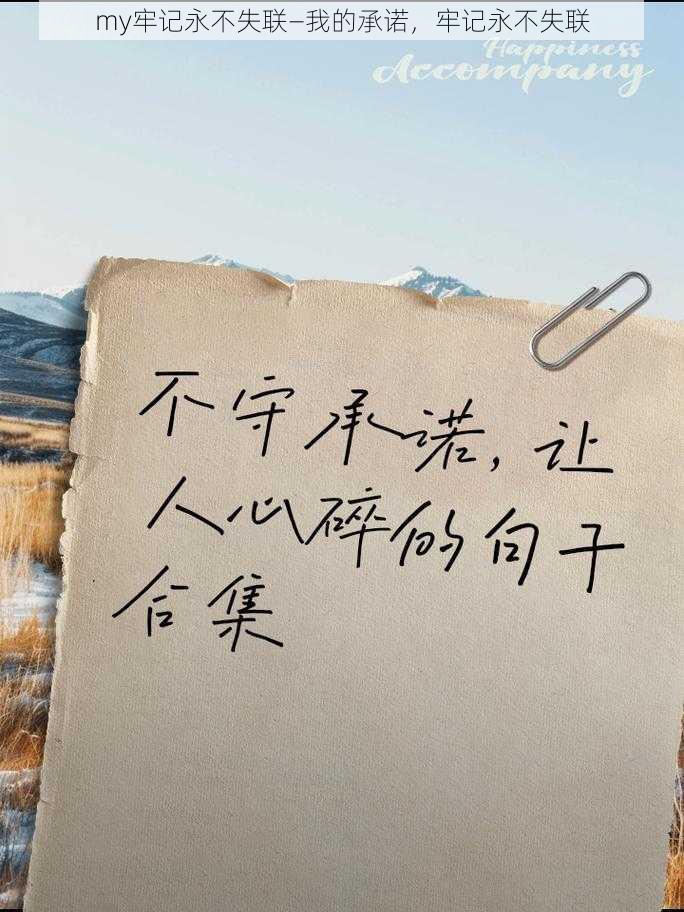 my牢记永不失联—我的承诺，牢记永不失联
Happiness
Accompany
不守承诺，让
人心碎的句子
合集